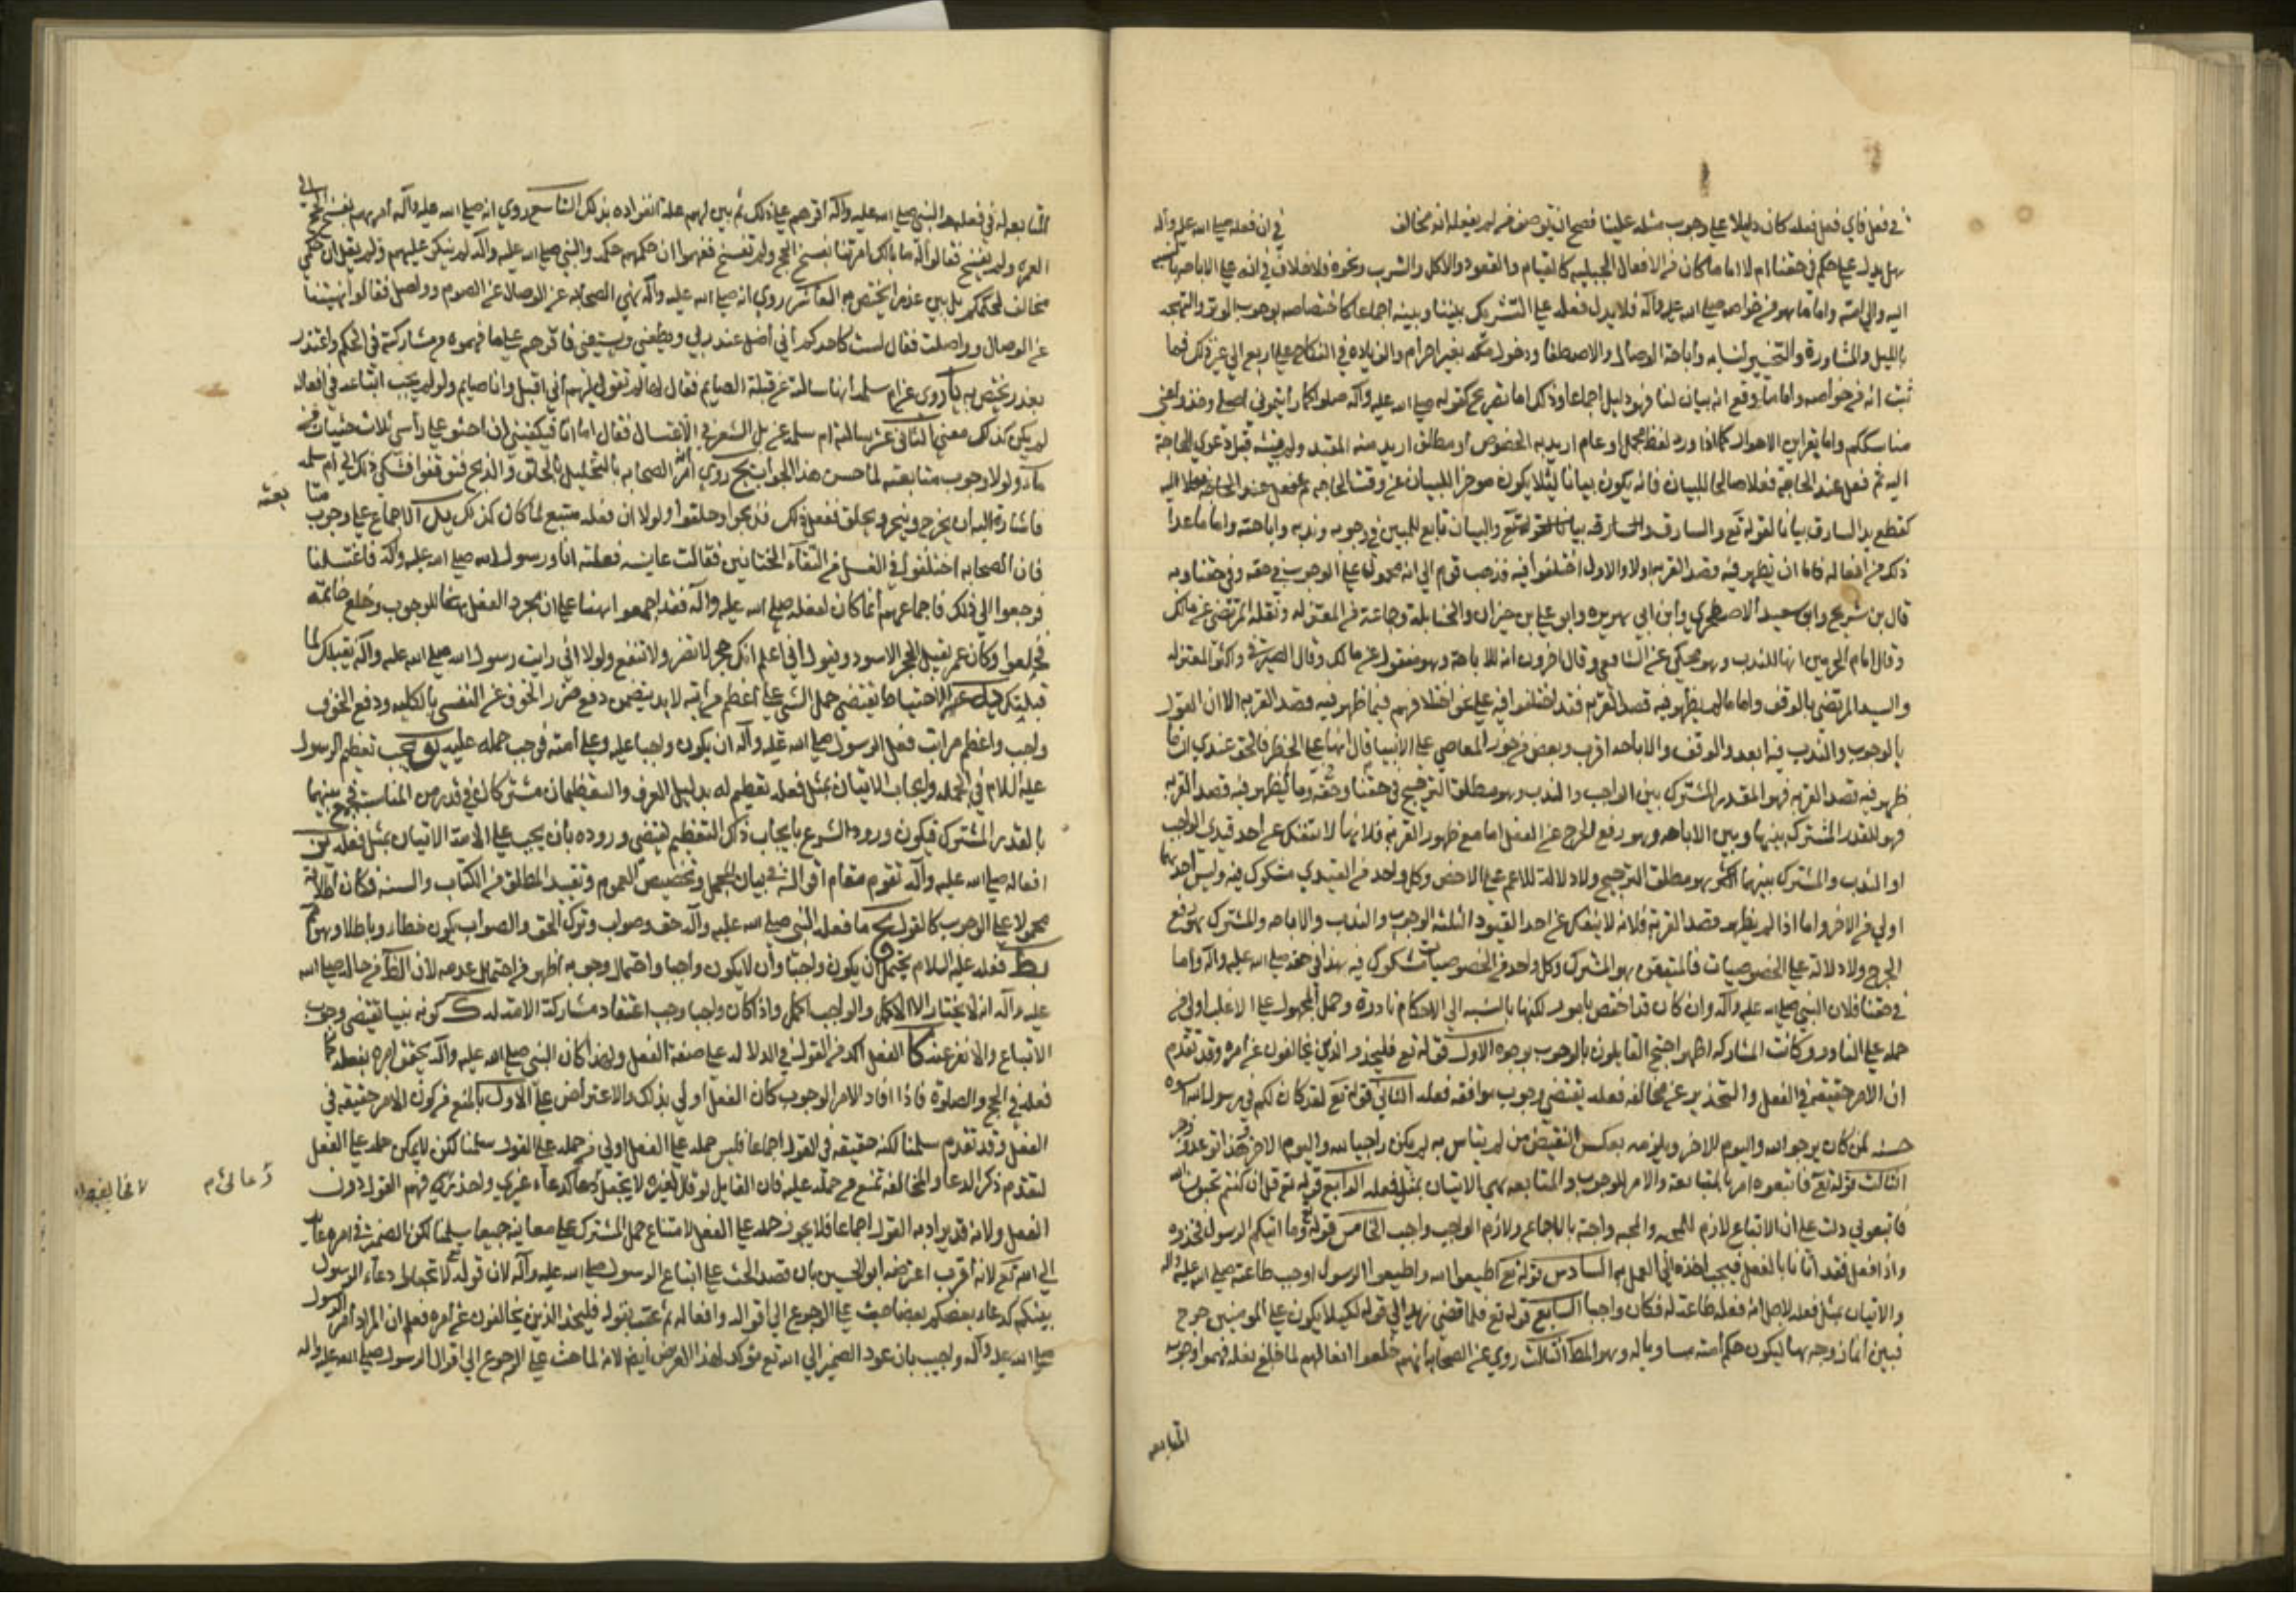 في فعل فاي فعل فعله كان دليلا علي وجوب مثله علينا فصح ان يوصف من لم يفعله انه مخالف في ان فعله صلي الله عليه وآله
هل يدل علي حكم في حقنا ام لا اما ما كان من الافعال الجبلية كالقيام والقعود والاكل والشرب ونحوه فلا خلاف في انه علي الاباحة بالنسبة
اليه والي امته واما ما هو من خواصه صلي الله عليه وآله فلا يدل فعله علي التشريك بيننا وبينه اجماعا كاختصاصه بوجوب الوتر والتهجد
بالليل والمشاورة والتخيير لنسايه واباحة الوصال والاصطفا ودخول مكة بغير احرام والزياده في النكاح علي اربع الي غير ذلك فيما
ثبت انه من خواصه واما ما وقع انه بيان لنا فهو دليل اجماعا وذلك اما بتصريح كقوله صلي الله عليه وآله صلوا كما رأيتموني اصلي وخذوا عني
مناسككم واما بقراين الاحوال كما اذا ورد لفظ مجمل او عام اريد به الخصوص او مطلق اريد منه المقيد ولم يبينه قبل دعوي الحاجة
اليه ثم فعل عند الحاجة فعلا صالحا للبيان فانه يكون بيانا لئلا يكون موخرا للبيان عن وقت الحاجه
كقطع يد السارق بيانا لقوله تع والسارق والسارقة والبيان تابع للمبين في وجوبه وندبه واباحته واما ما عدا
ذلك من افعاله فاما ان يظهر فيه قصد القربه اولا والاول اختلفوا فيه فذهب قوم الي انه محمول علي الوجوب في حقه وفي حقنا وبه
قال بن شريح وابو سعيد الاصطخري وابن ابي هريره وابو علي بن خيران والحنابلة وجماعة من المعتزله ونقله المرتضي عن مالك
وقال امام الحرمين انها للندب وهو محكي عن الشافعي وقال اخرون انه للاباحة وهو منقول عن مالك وقال الصيرفي واكثر المعتزله
والسيد المرتضي بالوقف واما ما لم يظهر فيه قصد القربه فقد اختلفوا فيه علي نحو اختلافهم فيما ظهر فيه قصد القربه الا ان القول
بالوجوب والندب فيه ابعد والوقف والاباحه اقرب وبعض من جوز المعاصي علي الانبيا قال انها علي الحظر فالحق عندي ان ما
ظهر فيه قصد القربه فهو المقدر المشترك بين الواجب والندب وهو مطلق الترجيح في حقنا وحقه وما لم يظهر فيه قصد القربه
فهو للقدر المشترك بينها وبين الاباحه وهو رفع الحرج عن الفعل اما مع ظهور القربة فلانها لا تنفك عن احد قيدي الواجب
او الندب والمشترك بينهما هو مطلق الترجيح ولا دلالة للاعم علي الاخص وكل واحد من القيدي مشكوك فيه وليس احدهما
اولي من الاخر واما اذا لم يظهر قصد القربة فلانه لا ينفك عن احد القيود الثلثه الوجوب والندب والاباحه والمشترك هو رفع
الحرج ولا دلالة علي الخصوصيات فالمتيقن هو المشترك وكل واحد من الخصوصيات مشكوك فيه هذا في حقه صلي الله عليه وآله واما
في حقنا فلان النبي صلي الله عليه وآله وان كان قد اختص بامور لكنها بالنسبة الي الاحكام نادرة وحمل المجهول علي الاغلب اولي من
حمله علي النادر وكانت المشاركه اظهر احتج القايلون بالوجوب بوجوه الاول قوله تع فليحذر الذين يخالفون عن امره وقد تقدم
ان الامر حقيقة في الفعل والتحذير عن مخالفه فعله يقتضي وجوب موافقه فعله الثاني قوله تع لقد كان لكم في رسول الله اسوه
حسنه لمن كان يرجو الله واليوم الاخر ويلزمه بعكس النقيض من لم يتأس به لم يكن راجيا لله واليوم الاخر
الثالث قوله تع فاتبعوه امر بالمتابعة والامر للوجوب والمتابعه هي الاتيان بمثل فعله الرابع قوله تع قل ان كنتم تحبون الله
فاتبعوني دلت علي ان الاتباع لازم للمحبه والمحبه واجبة بالاجماع ولازم الواجب واجب الخامس قوله تع وما اتيكم الرسول فخذوه
واذا فعل فقد اتانا بالفعل فيجب اخذه اي العمل به السادس قوله تع اطيعوا الله واطيعوا الرسول اوجب طاعته صلي الله عليه وآله
والاتيان بمثل فعله لاجل انه فعله طاعة له فكان واجبا السابع قوله تع فلما قضي زيد الي قوله لكيلا يكون علي المومنين حرج
فبين انما زوجه بها ليكون حكم امته مساويا له وهو المط الثامن روي عن الصحابه انهم خلعوا نعالهم لما خلع نعله فهموا وجوب
المتابعه
المتابعة له في فعله والنبي صلي الله عليه وآله اقرهم علي ذلك ثم بين لهم علة انفراده بذلك التاسع روي انه صلي الله عليه وآله امرهم بفسخ الحج الي
العمرة ولم يفسخ فقالوا له ما بالك امرتنا بفسخ الحج ولم تفسخ ففهموا ان حكمهم حكمه والنبي صلي الله عليه وآله لم ينكر عليهم ولم يقل ان حكمي
مخالف لحكمكم بل بين عذرا يختص به العاشر روي انه صلي الله عليه وآله نهي الصحابه عن الوصال في الصوم وواصل فقالوا نهيتنا
عن الوصال وواصلت فقال لست كاحدكم اني اظل عند ربي يطعمني ويسقيني فاقرهم علي ما فهموه من مشاركته في الحكم واعتذر
بعذر يختص به يا روي عن ام سلمه انها سالته عن قبلة الصايم فقال لها لم لم تقولي لهم اني اقبل وانا صايم ولو لم يجب اتباعه في افعاله
لم يكن كذلك معني الثاني عشر سالته ام سلمه عن بل الشعر في الاغتسال فقال اما انا فيكفيني ان احثو علي رأسي ثلاث حثيات من
ماء ولولا وجوب متابعته لما حسن هذا الجواب يج روي امر الصحابه بالتحليل بالحلق والذبح فتوقفوا فشكي ذلك الي ام سلمه
فاشارت اليه ان يخرج وينحر ويحلق ففعل ذلك فذبحوا وحلقوا ولولا ان فعله متبع لما كان كذلك يد الاجماع علي وجوب متابعته
فان الصحابه اختلفوا في الغسل من التقاء الختانين فقالت عايشه فعلته انا ورسول الله صلي الله عليه وآله فاغتسلنا
فرجعوا الي ذلك فاجماعهم انما كان لفعله صلي الله عليه وآله فقد اجمعوا ههنا علي ان مجرد الفعل للوجوب وخلع خاتمه
فخلعوا وكان عمر يقبل الحجر الاسود ويقول اني اعلم انك حجر لا تضر ولا تنفع ولولا اني رايت رسول الله صلي الله عليه وآله يقبلك لما
قبلتك الاحتياط يقتضي حمل الشي علي اعظم مراتبه لا بد يتضمن دفع ضرر الخوف عن النفس بالكليه ودفع الخوف
واجب واعظم مراتب فعل الرسول صلي الله عليه وآله ان يكون واجبا عليه وعلي امته فوجب حمله عليه يو يجب تعظيم الرسول
عليه السلام في الجملة وايجاب الاتيان بمثل فعله تعظيم له بدليل العرف والتعظيمان مشتركان في قدر من المناسبة فيجمع بينهما
بالقدر المشترك فيكون ورود الشرع بايجاب ذلك التعظيم يقتضي وروده بان يجب علي الامة الاتيان بمثل فعله يز
افعاله صلي الله عليه وآله تقوم مقام اقواله في بيان المجمل وتخصيص العموم وتقييد المطلق من الكتاب والسنه فكان
محمولا علي الوجوب كالقول يح ما فعله النبي صلي الله عليه وآله حق وصواب وترك الحق والصواب يكون خطاء وباطلا وهو
يط فعله عليه السلام يحتمل ان يكون واجبا وان لا يكون واجبا واحتمال وجوبه اظهر من احتمال عدمه لان الظاهر من حاله صلي الله
عليه وآله انه لا يختار الا الاكمل والواجب اكمل واذا كان واجبا وجب اعتقاد مشاركة الامة له كونه نبيا تقتضي وجوب
الاتباع والا نفر عنه كا الفعل اكد من القول في الدلالة علي صفة الفعل ولهذا كان النبي صلي الله عليه وآله يحقق امره بفعله كما
فعله في الحج والصلوة فاذا افاد الامر الوجوب كان الفعل اولي بذلك والاعتراض علي الاول بالمنع من كون الامر حقيقه في
الفعل وقد تقدم سلمنا لكنه حقيقه في القول اجماعا فليس حمله علي الفعل اولي من حمله علي القول سلمنا لكن لا يمكن حمله علي الفعل
لتقدم ذكر الدعا والمخالفه تمنع من حمله عليه فان القايل لو قال لغيره لا تجعل دعائي كدعاء غيري واحذر فهم القول دون
الفعل ولانه قد يراد به القول اجماعا فلا يجوز حمله علي الفعل لامتناع حمل المشترك علي معانيه جميعا سلمنا لكن الضمير في امره عايد
الي الله تع لانه اقرب اعترضه ابو الحسين بان قصد الحث علي اتباع الرسول صلي الله عليه وآله لان قوله تع لا تجعلوا دعاء الرسول
بينكم كدعاء بعضكم بعضا حث علي الرجوع الي اقواله وافعاله ثم عقب بقوله فليحذر الذين يخالفون عن امره فعلم ان المراد امر الرسول
صلي الله عليه وآله واجيب بان عود الضمير الي الله تع موكد لهذا الغرض ايضا لانه لما حث علي الرجوع الي اقوال الرسول صلي الله عليه وآله